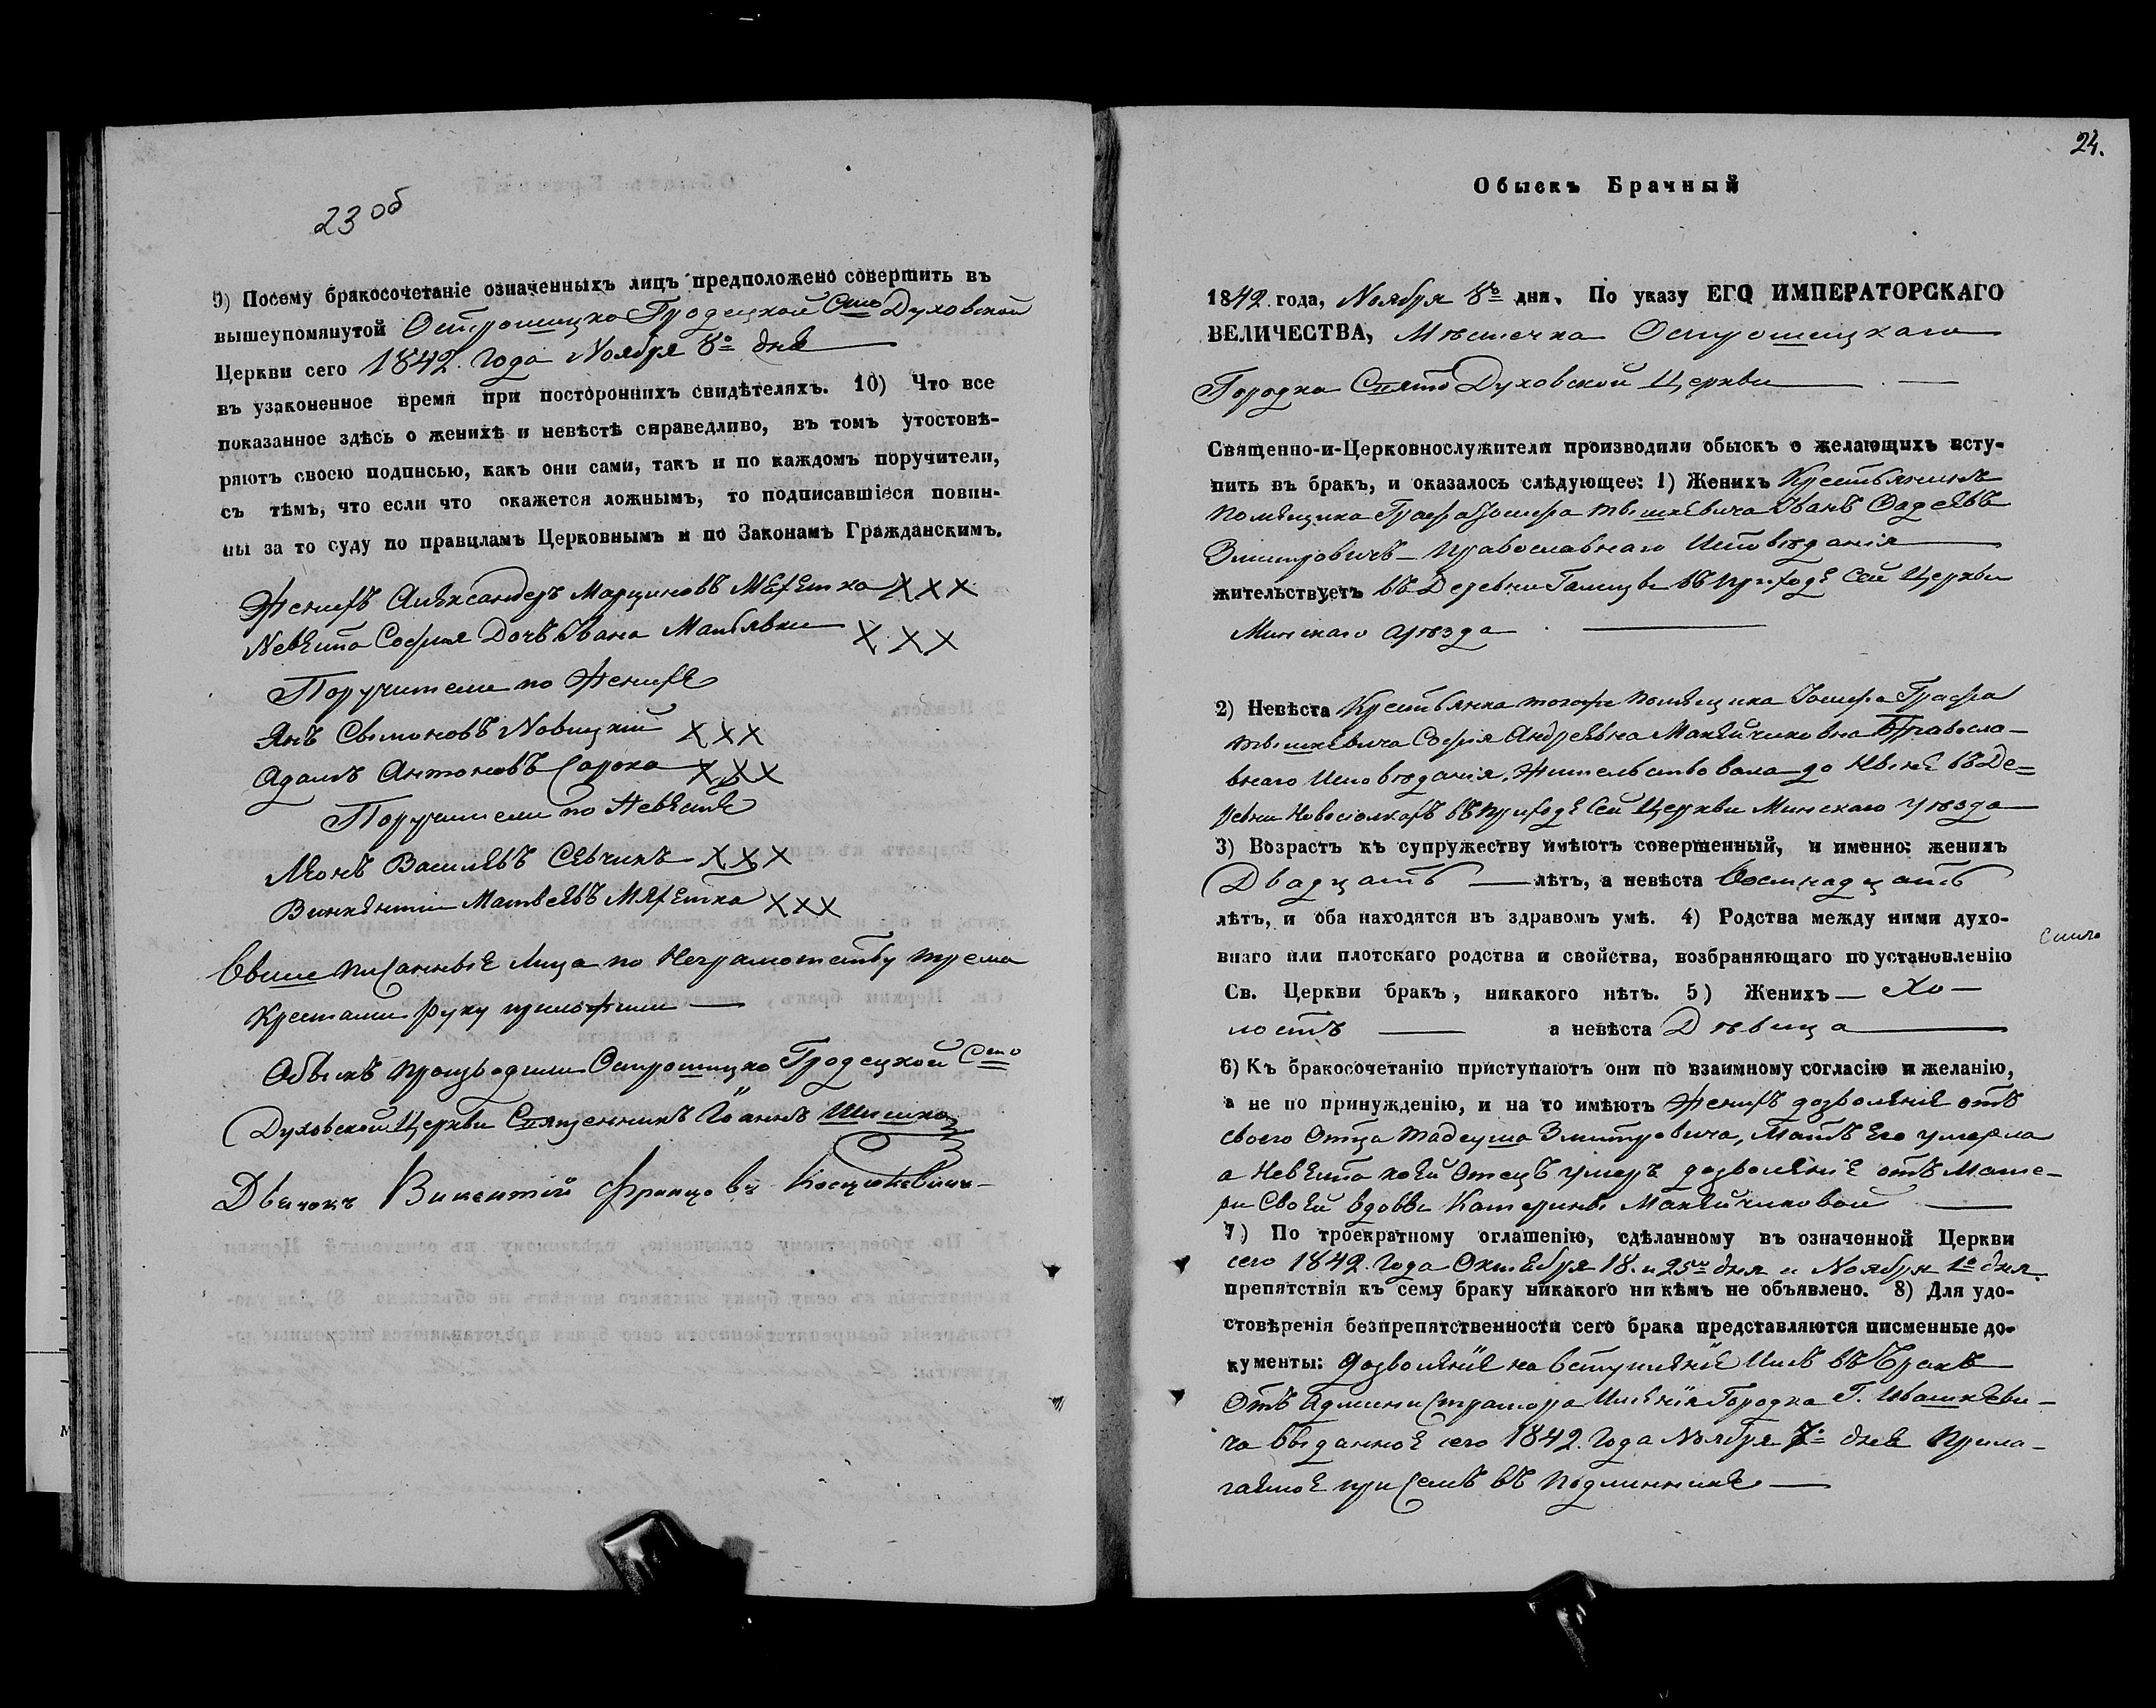 23 об
9) Посему бракосочетаніе означенныхъ лицъ предположено совершить въ
вышеупомянутой Острошицко Гродецкой Сто Духовской
Церкви сего 1842. года Ноября 8о дня
въ узаконенное время при постороннихъ свидѣтеляхъ. 10) Что все
показанное здѣсь о женихѣ и невѣстѣ справедливо, въ томъ утостовѣ-
ряютъ своею подписью, какъ они сами, такъ и по каждомъ поручители,
съ тѣмъ, что если что окажется ложнымъ, то подписавшіеся повин-
ны за то суду по правиламъ Церковнымъ и по Законамъ Гражданскимъ.
Женихъ Александеръ Марциновъ Мехетко XXX
Невеста Софія Дочъ Ивана Матьявки XXX
Поручители по Женихе
Янъ Свимоновъ Новицкій XXX
Адамъ Антоновъ Сарока XXX
Поручители по Невесте
Леонъ Васильевъ Севчикъ XXX
Винкентий Матвеевъ Мяхетка XXX
Выше писанные Лица по Неграмотству трема
Крестами руку приложили
Обыскъ производили Острошицко Гродецкой Сто
Духовской Церкви Священникъ Іоаннъ Шишко
Дьячокъ Викентій Францовъ Косцюкевичъ
24.
Обыскъ Брачный
1842 года, Ноября 8о дня. По указу ЕГО ИМПЕРАТОРСКАГО
ВЕЛИЧЕСТВА, Мѣстечка Острошицкаго
Городка Свято Духовской Церкви
Священно-и-Церковнослужители производили обыскъ о желающихъ всту-
пить въ бракъ, и оказалось слѣдующее: 1) Женихъ Крестьянинъ
Помещика Графа Іосифа Тышкевича Иванъ Фадеевъ
Змитровичъ Православнаго Исповѣданія
жительствуетъ въ Деревни Галицы въ приходе Сей Церкви
Минскаго уѣзда
2) Невѣста Крестьянка тогоже Помещика Іосифа Графа
Тышкевича Софія Андреевна Макейчиковна Правосла-
внаго Исповѣданія, Жительствовала до Ныне въ Де=
ревни Новосіолкахъ въ приходе Сей Церкви Минскаго уѣзда
3) Возрастъ къ супружеству имѣютъ совершенный, и именно: женихъ
Двадцать лѣтъ, а невѣста Восемнадцать
лѣтъ, и оба находятся въ здравомъ умѣ. 4) Родства между ними духо-
внаго или плотскаго родства и свойства, возбраняющаго по установленію
Св. Церкви бракъ, никакого нѣтъ. 5) Женихъ Хо-
лостъ а невѣста Дѣвица
6) Къ бракосочетанію приступаютъ они по взаимному согласію и желанію,
а не по принужденію, и на то имѣютъ Женихъ дозволеніе отъ
своего Отца Тадеуша Змитровича, Мать Его умерла
а Невеста коей Отецъ умеръ дозволеніе отъ Мате-
ри Своей вдовы Катерины Макейчиковой
7) По троекратному оглашенію, сдѣланному въ означенной Церкви
сего 1842. года Октября 18. и 25го дня и Ноября 1о дня.
препятствія къ сему браку никакого ни кѣмъ не объявлено. 8) Для удо-
стовѣренія безпрепятственности сего брака представляются писменные до-
кументы: дозволеніе на вступленіе Имъ въ Бракъ
Отъ Администратора Именія Городка Г. Ивашкеви-
ча Выданное сего 1842. года Ноября 7о дня Прила-
гаемое при семъ въ Подлиннике